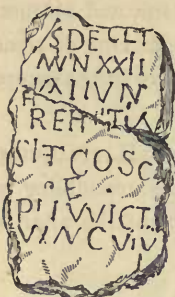 SDECLT
NVNXXII
IXIIVN
REHTIA
SIT COSC
· E ·
PIIVVICT
VINCVIV